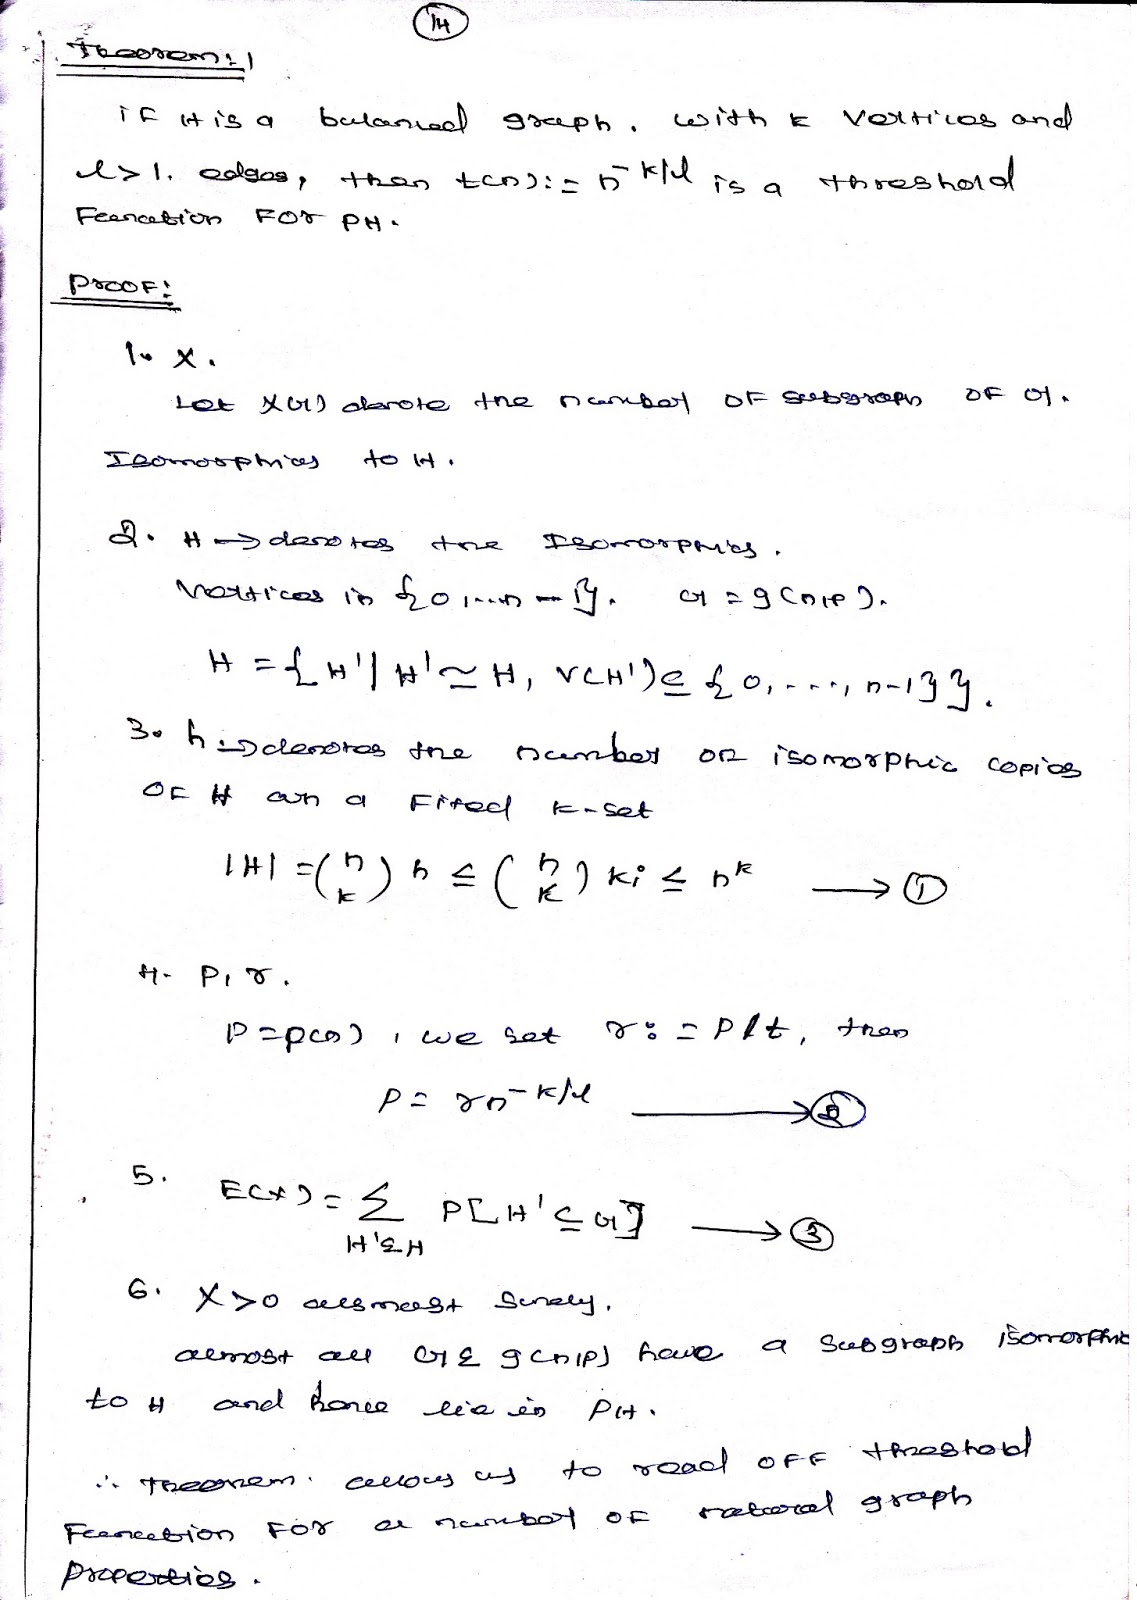 14
Theorem: 1
if H is a balanced graph. with k vertices and
l > 1. edges, then t(n) := n^-k/l is a threshold
Function FOR PH.
PROOF:
1. X.
Let X(G) denote the number OF subgraph OF G.
Isomorphics to H.
2. H → denotes the Isomorphics.
Vertices in {0,...n-1}. G = g(n,p).
H = {H' | H' ≃ H, V(H') ⊆ {0, ..., n-1}}.
3. h → denotes the number OR isomorphic copies
OF H on a Fixed k-set
|H| = (n k) h ≤ (n k) k! ≤ n^k → ①
4. P, r.
P = p(n), we set r := P/t, then
P = rn^-k/l → ②
5.
E(X) = Σ P[H' ⊆ G] → ③
H' ∈ H
6. X > 0 almost surely.
almost all G ∈ g(n,p) have a subgraph isomorphic
to H and hence lie in PH.
∴ Theorem. allows us to read OFF threshold
Function FOR a number OF natural graph
Properties.